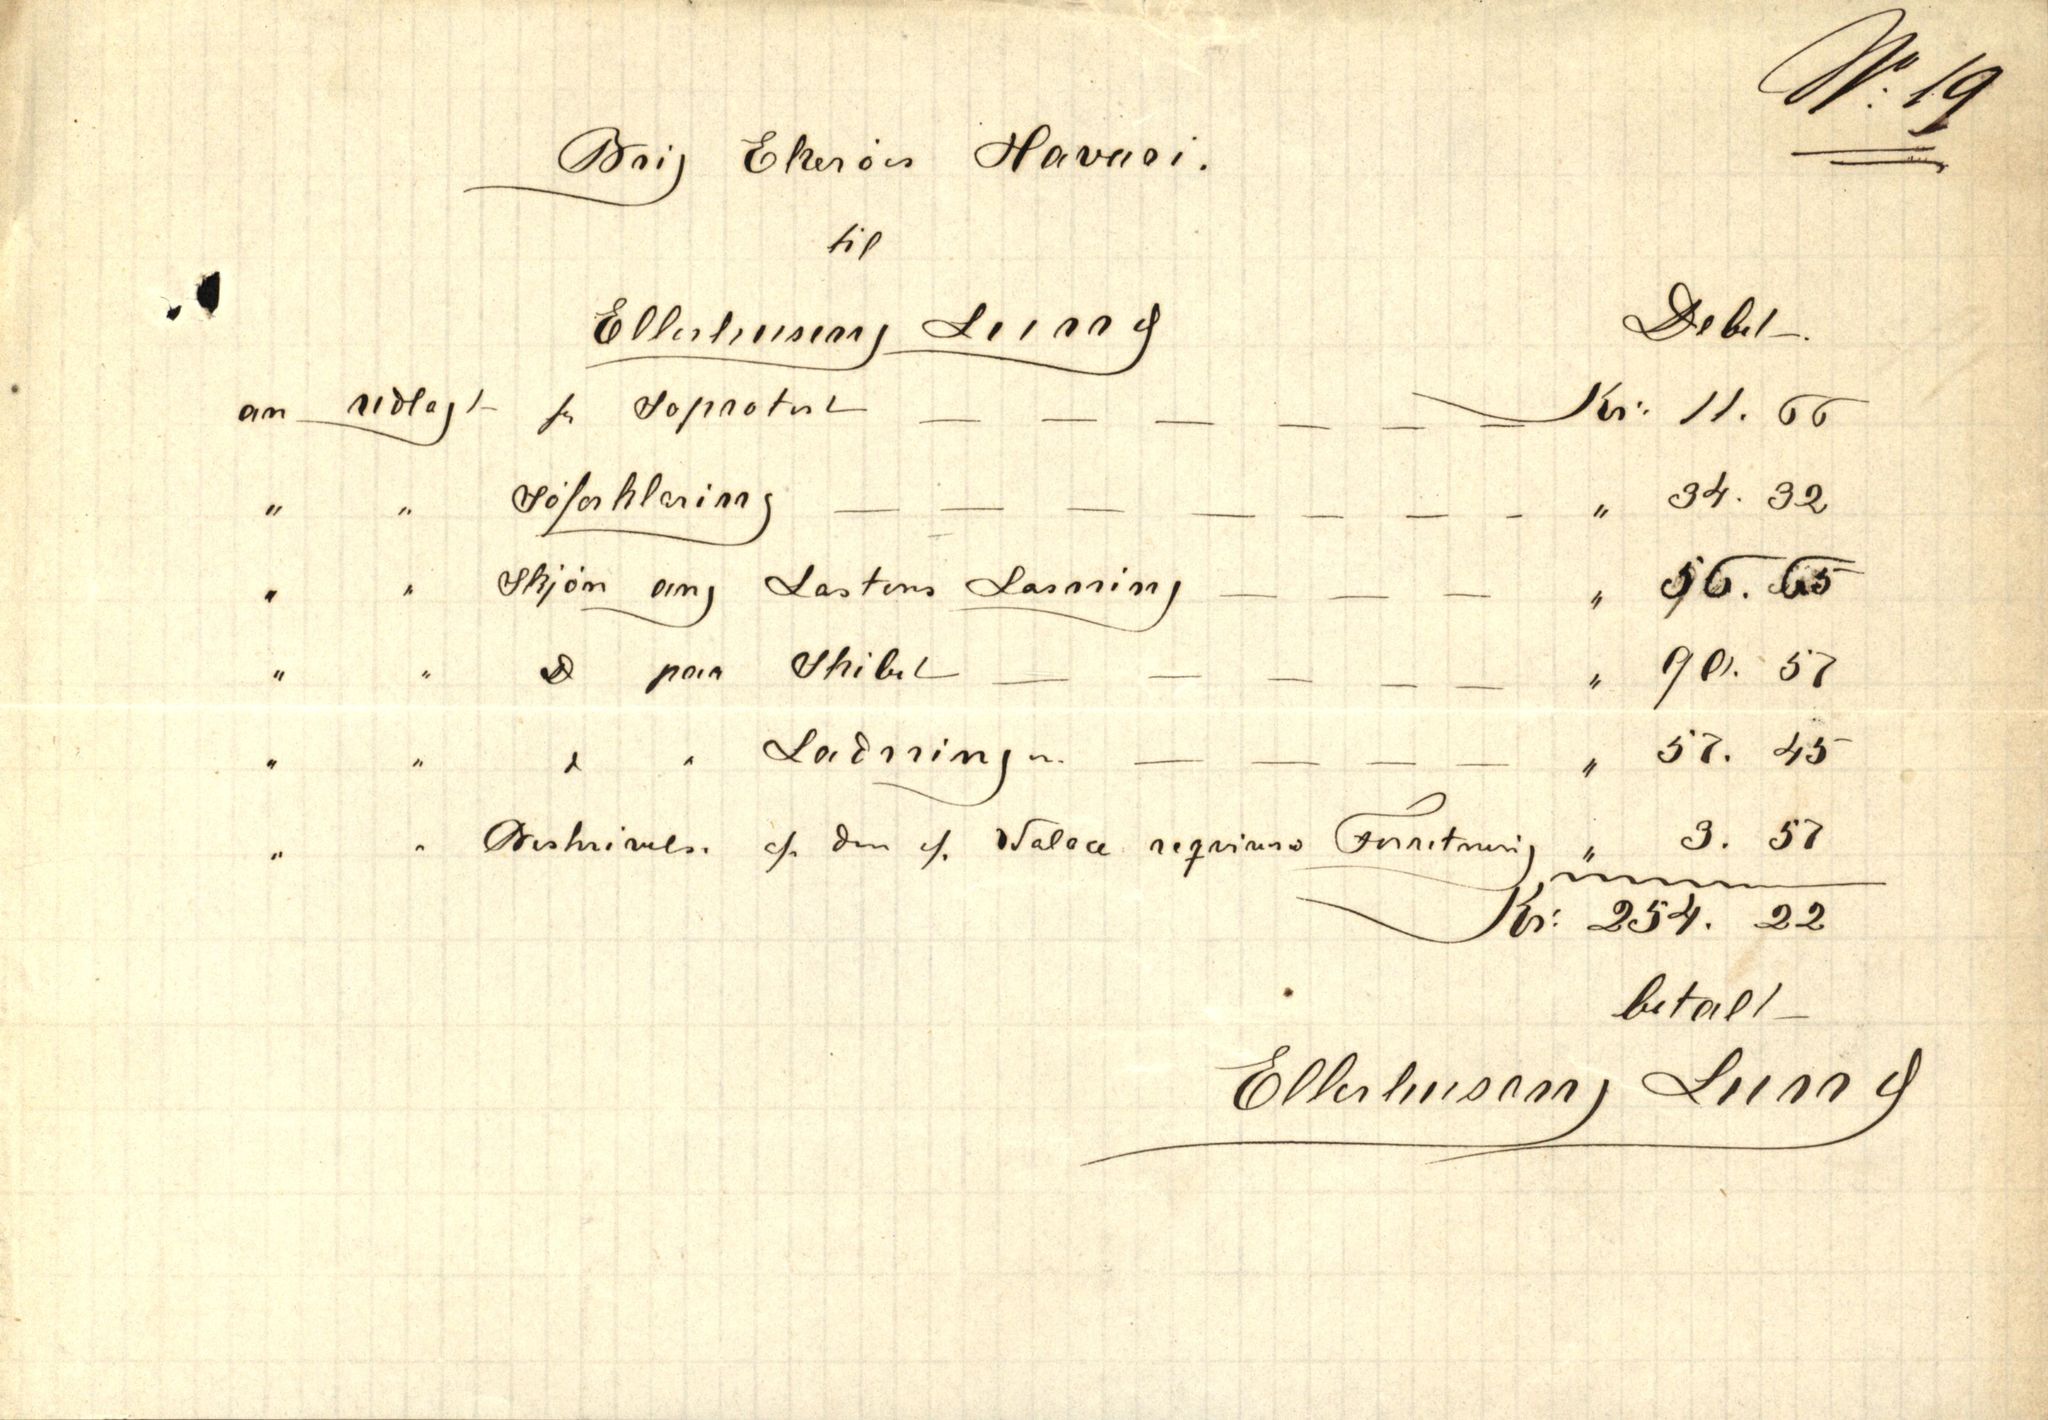 No. 19
Brig Ekeröes Havari.
til
Ellerhusen & Lund Debet.
an udlagt for Söprotest — — — — — — Kr: 11. 66
" " Söforklaring — — — — — — — " 34. 32
" " Skjön ang Lastens Losning — — — " 56. 65
" " Do paa Skibet — — — — — " 90. 57
" " do " Ladningen — — — — " 57. 45
" " Beskrivelse af den af Walace reqvirerede Forretning " 3. 57
Kr: 254. 22
betalt
Ellerhusen & Lund